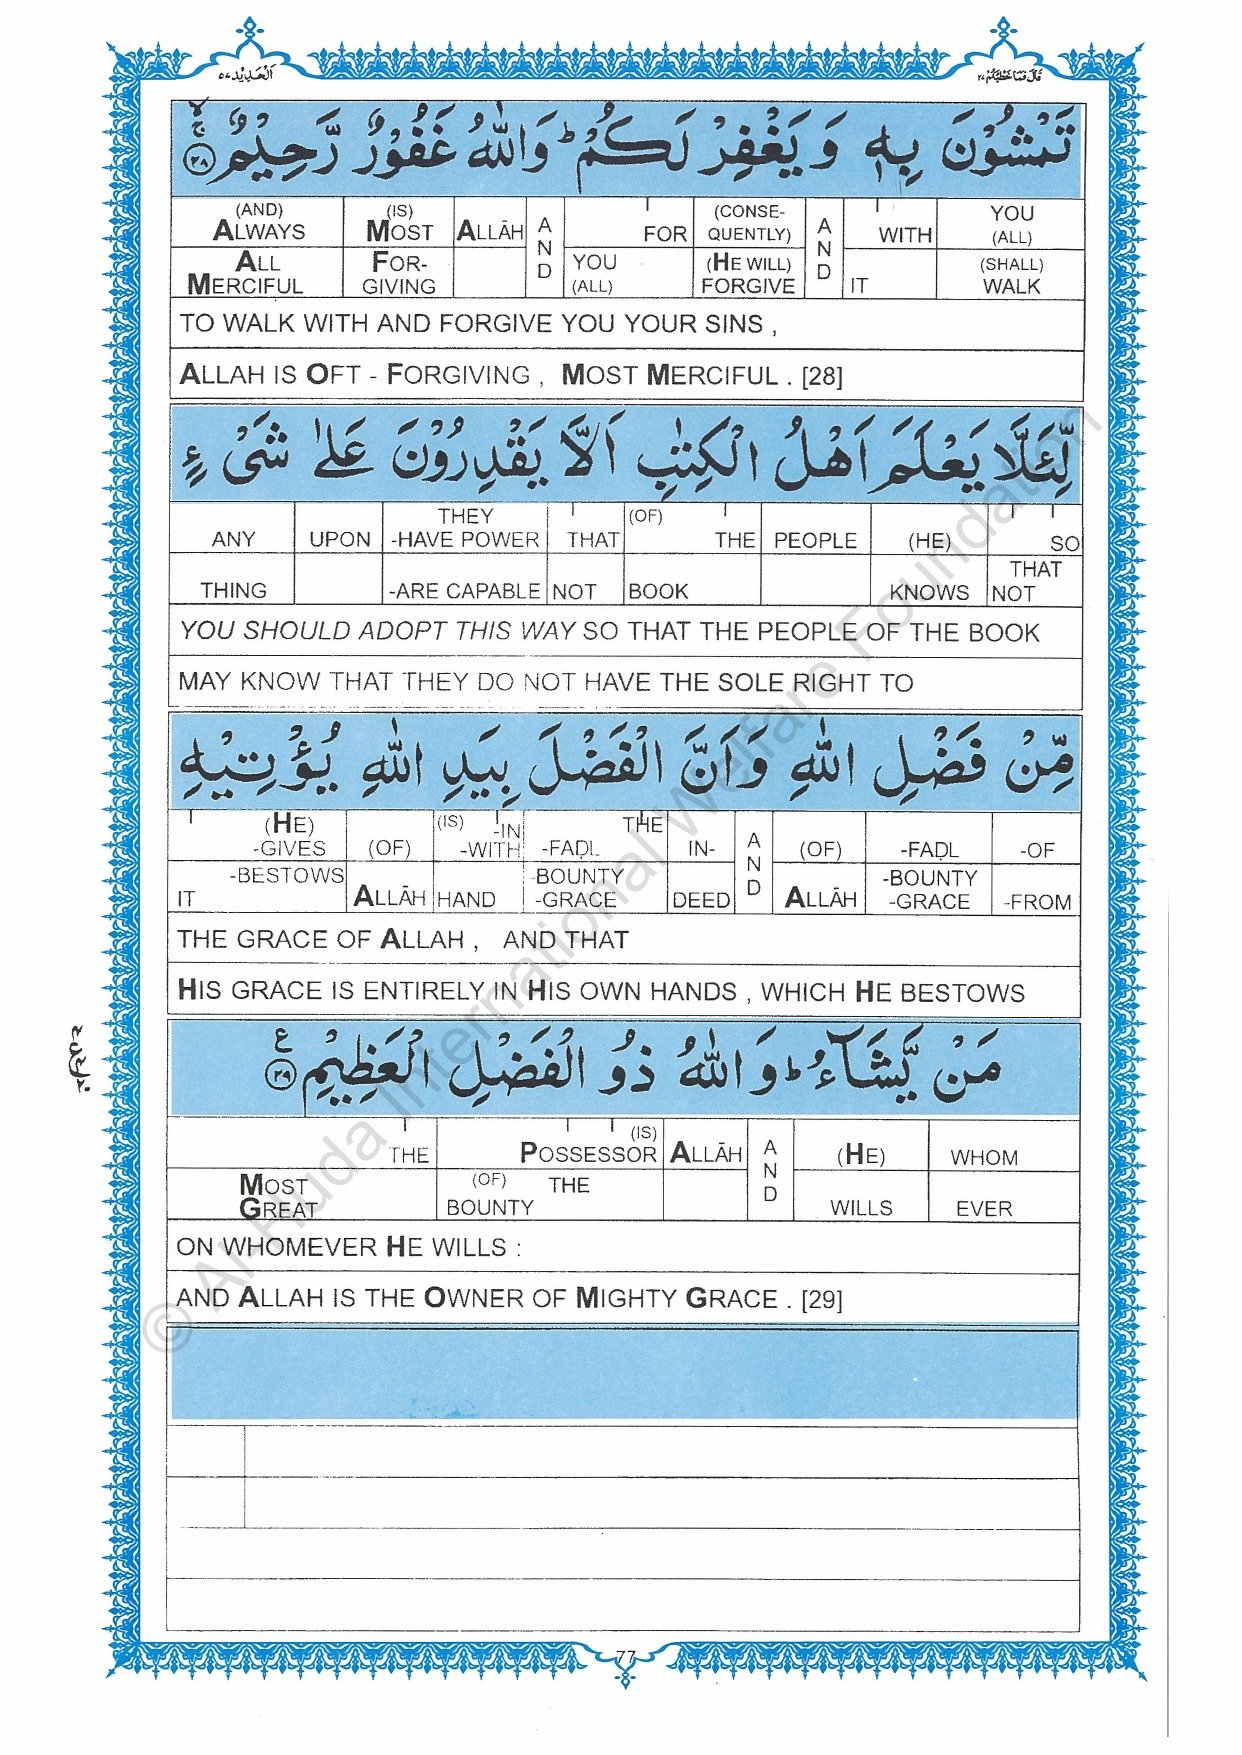 اَلْحَدِيْد ٥٧
قَالَ فَمَا خَطْبُكُمْ ٢٧
تَمْشُوْنَ بِهٖ وَ يَغْفِرْ لَكُمْ ؕ وَاللّٰهُ غَفُوْرٌ رَّحِيْمٌ ۙۚ ﴿٢٨﴾
(AND) (IS) A (CONSE- A YOU
ALWAYS MOST ALLĀH N FOR QUENTLY) N WITH (ALL)
ALL FOR- D YOU (HE WILL) D (SHALL)
MERCIFUL GIVING (ALL) FORGIVE IT WALK
TO WALK WITH AND FORGIVE YOU YOUR SINS ,
ALLAH IS OFT - FORGIVING , MOST MERCIFUL . [28]
لِّئَلَّا يَعْلَمَ اَهْلُ الْكِتٰبِ اَلَّا يَقْدِرُوْنَ عَلٰى شَىْءٍ
THEY (OF)
ANY UPON -HAVE POWER THAT THE PEOPLE (HE) SO
THAT
THING -ARE CAPABLE NOT BOOK KNOWS NOT
YOU SHOULD ADOPT THIS WAY SO THAT THE PEOPLE OF THE BOOK
MAY KNOW THAT THEY DO NOT HAVE THE SOLE RIGHT TO
مِّنْ فَضْلِ اللّٰهِ وَاَنَّ الْفَضْلَ بِيَدِ اللّٰهِ يُؤْتِيْهِ
(HE) (IS) -IN THE A
-GIVES (OF) -WITH -FAḌL IN- N (OF) -FAḌL -OF
-BESTOWS -BOUNTY D -BOUNTY
IT ALLĀH HAND -GRACE DEED ALLĀH -GRACE -FROM
THE GRACE OF ALLAH , AND THAT
HIS GRACE IS ENTIRELY IN HIS OWN HANDS , WHICH HE BESTOWS
مَنْ يَّشَآءُ ؕ وَاللّٰهُ ذُو الْفَضْلِ الْعَظِيْمِ ﴿٢٩﴾ ع
(IS) A
THE POSSESSOR ALLĀH N (HE) WHOM
MOST (OF) THE D
GREAT BOUNTY WILLS EVER
ON WHOMEVER HE WILLS :
AND ALLAH IS THE OWNER OF MIGHTY GRACE . [29]
77
© Al-Huda International Welfare Foundation